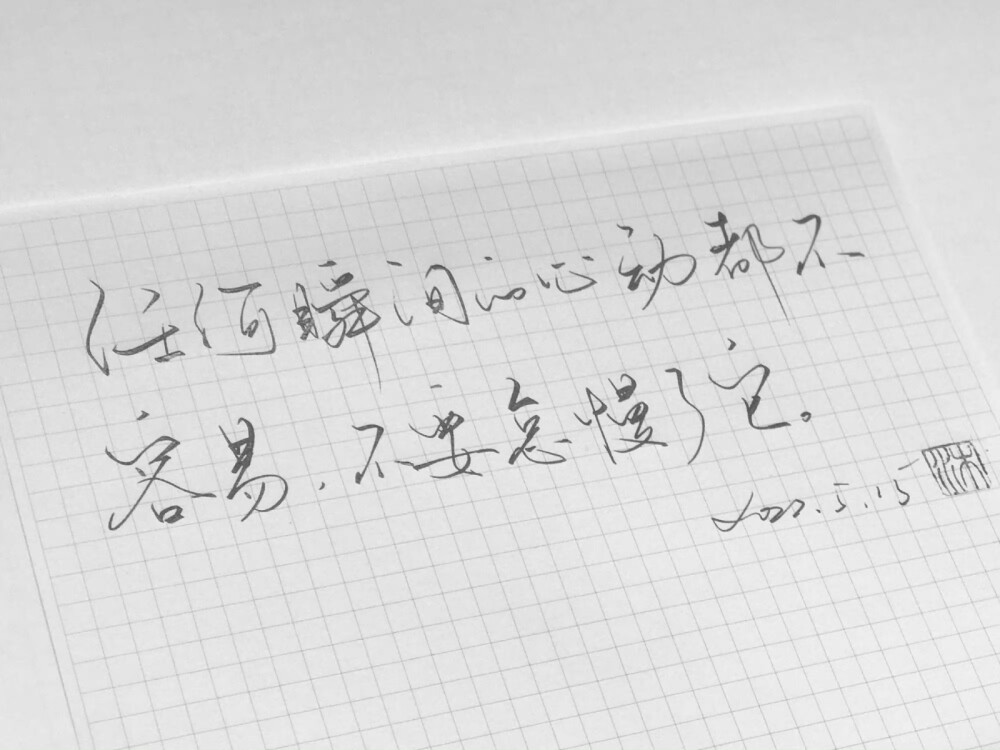 任何瞬间的心动都不
容易，不要怠慢了它。
2022.5.15